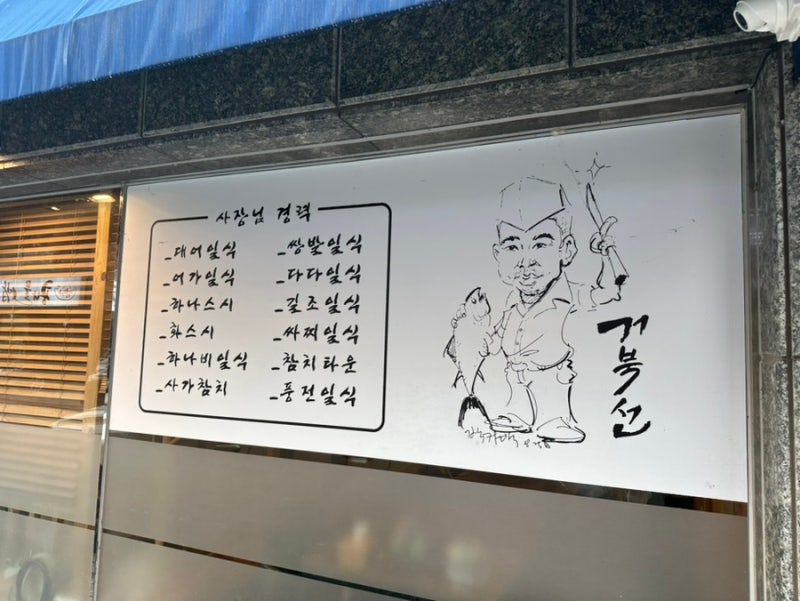 사장님 경력
_대어일식
_어가일식
_하나스시
_화스시
_하나비일식
_사가참치
_쌍발일식
_다다일식
_길조일식
_싸찌일식
_참치타운
_풍전일식
거북선